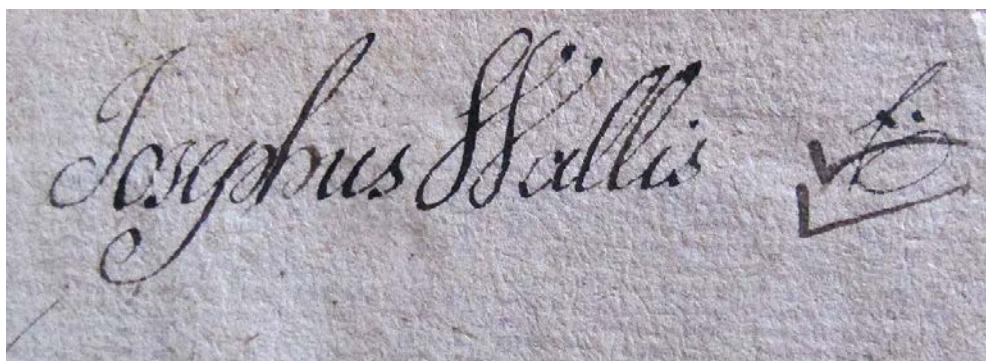 Josephus Wallis f.